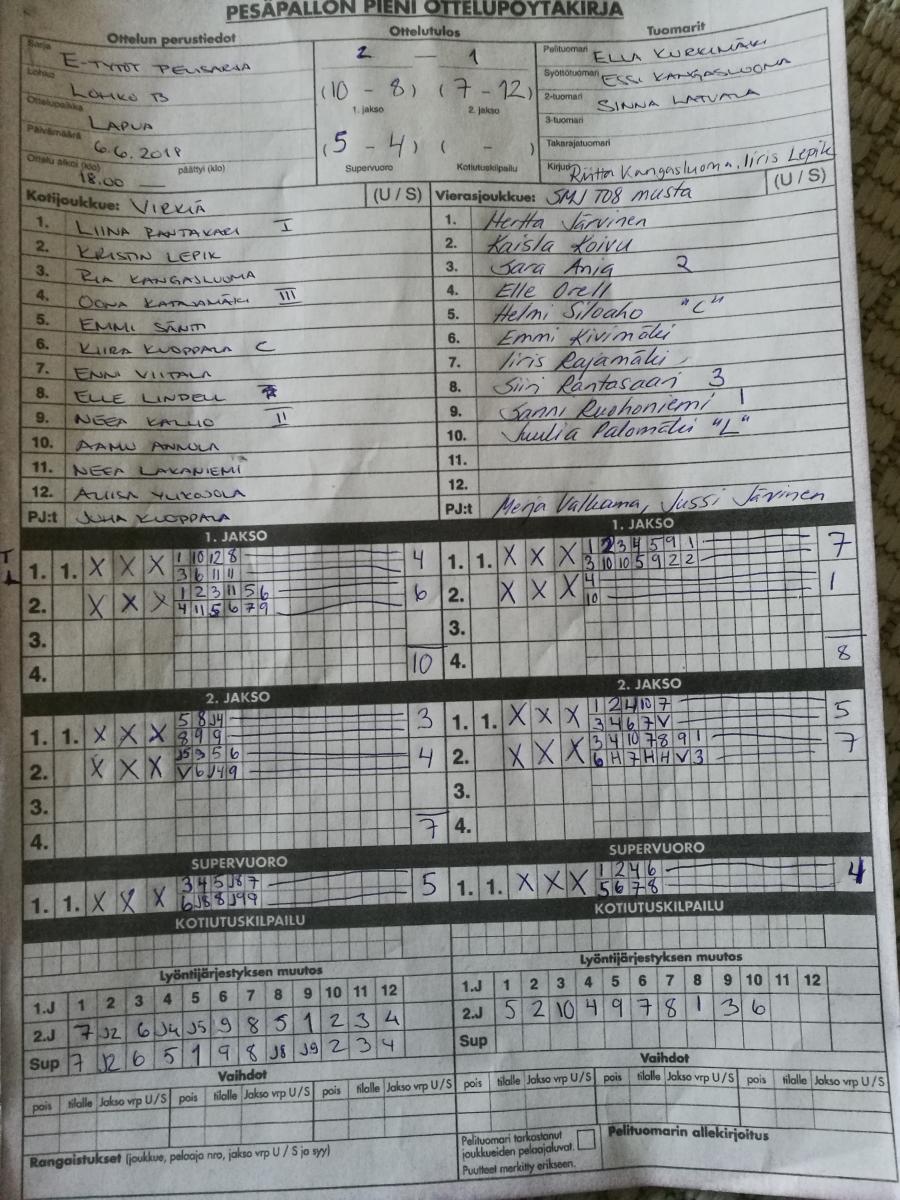 PESÄPALLON PIENI OTTELUPÖYTÄKIRJA
Ottelun perustiedot
Ottelutulos
Tuomarit
Sarja E-TYTÖT PELISARJA
Lohko LOHKO B
Ottelupaikka LAPUA
Päivämäärä 6.6.2018
Ottelu alkoi (klo) 18.00 päättyi (klo)
2 — 1
(10 - 8) (7 - 12)
1. jakso 2. jakso
(5 - 4) ( - )
Supervuoro Kotiutuskilpailu
Pelituomari ELLA KURKIMÄKI
Syöttötuomari ESSI KANGASLUOMA
2-tuomari SINNA LATVALA
3-tuomari
Takarajatuomari
Kirjuri Riitta Kangasluoma, Iiris Lepik
Kotijoukkue: VIRKIÄ (U / S)
1. LIINA RANTAKARI I
2. KRISTIN LEPIK
3. RIA KANGASLUOMA
4. OONA KATAJAMÄKI III
5. EMMI SÄNTI
6. KIIRA KUOPPALA C
7. ENNI VIITALA
8. ELLE LINDELL
9. NEEA KALLIO II
10. AAMU ANNOLA
11. NEEA LAKANIEMI
12. ALIISA YLIKOJOLA
PJ:t JUHA KUOPPALA
Vierasjoukkue: SMJ T08 musta (U / S)
1. Hertta Järvinen
2. Kaisla Koivu
3. Sara Ania 2
4. Elle Orell
5. Helmi Siloaho "C"
6. Emmi Kivimäki
7. Iiris Rajamäki
8. Siiri Rantasaari 3
9. Sanni Ruohoniemi 1
10. Juulia Palomäki "L"
11.
12.
PJ:t Merja Valkama, Jussi Järvinen
1. JAKSO
1. 1. X X X 1 10 12 8 4
3 6 11 11
2. X X X 1 2 3 11 5 6 6
4 11 5 6 7 9
3.
4. 10
1. JAKSO
1. 1. X X X 1 2 3 4 5 9 1 7
3 10 10 5 9 2 2
2. X X X 4 1
10
3.
4. 8
2. JAKSO
1. 1. X X X 5 8 J4 3
8 9 9
2. X X X J5 3 5 6 4
V 6 J4 9
3.
4. 7
2. JAKSO
1. 1. X X X 1 2 4 10 7 5
3 4 6 7 V
2. X X X 3 4 10 7 8 9 1 7
6 H 7 H H V 3
3.
4.
SUPERVUORO
1. 1. X X X 3 4 5 J8 7 5
6 J8 8 J9 9
SUPERVUORO
1. 1. X X X 1 2 4 6 4
5 6 7 8
KOTIUTUSKILPAILU
KOTIUTUSKILPAILU
Lyöntijärjestyksen muutos
1.J 1 2 3 4 5 6 7 8 9 10 11 12
2.J 7 J2 6 J4 J5 9 8 5 1 2 3 4
Sup 7 J2 6 5 1 9 8 J8 J9 2 3 4
Lyöntijärjestyksen muutos
1.J 1 2 3 4 5 6 7 8 9 10 11 12
2.J 5 2 10 4 9 7 8 1 3 6
Sup
Vaihdot
pois tilalle Jakso vrp U/S pois tilalle Jakso vrp U/S pois tilalle Jakso vrp U/S
Vaihdot
pois tilalle Jakso vrp U/S pois tilalle Jakso vrp U/S pois tilalle Jakso vrp U/S
Rangaistukset (joukkue, pelaaja nro, jakso vrp U / S ja syy)
Pelituomari tarkastanut
joukkueiden pelaajaluvat.
Puutteet merkitty erikseen.
Pelituomarin allekirjoitus